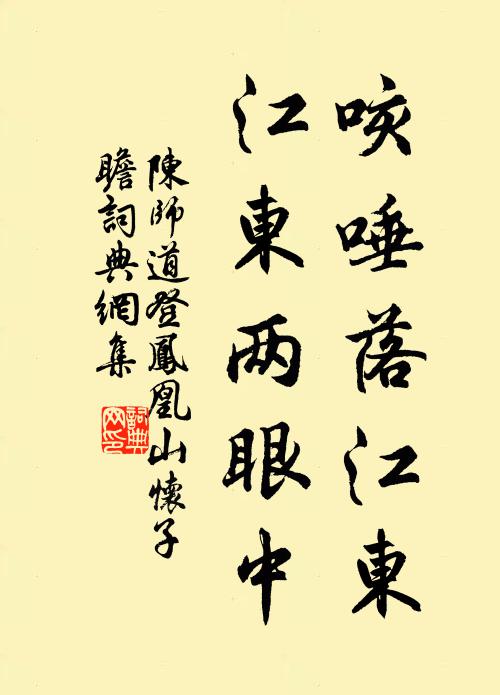 咳唾落江東
江東两眼中
陳師道登鳳凰山懷子
瞻詞典網集
詞典
网印